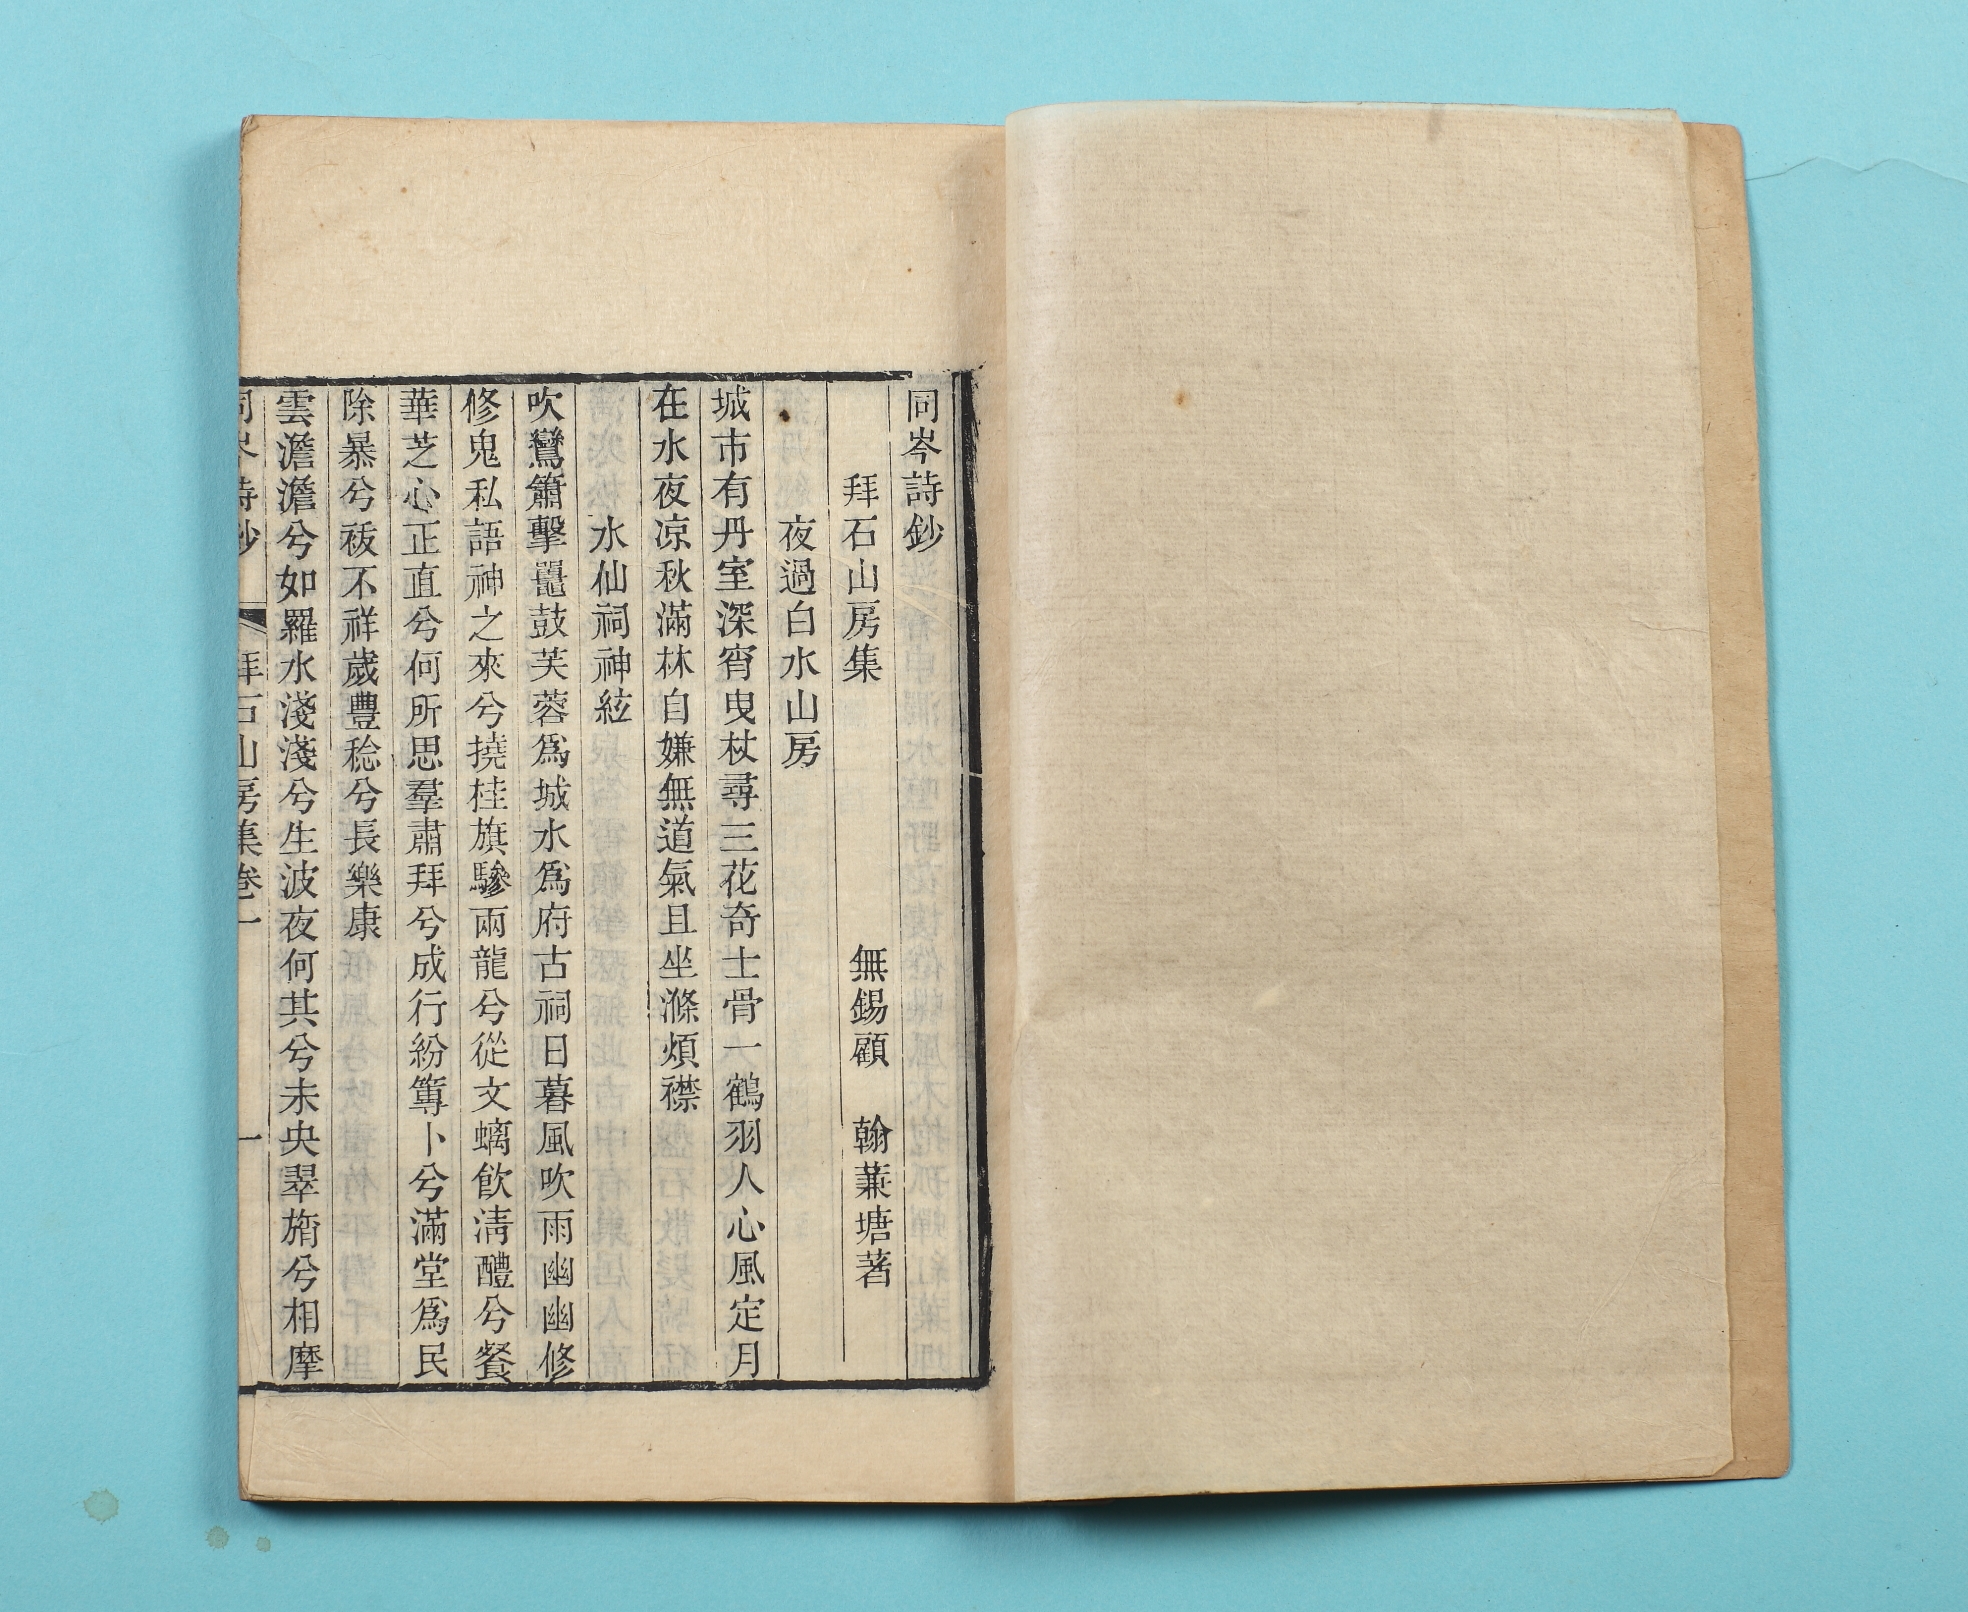 同岑詩鈔
拜石山房集　無錫顧　翰蒹塘著
夜過白水山房
城市有丹室深宵曳杖尋三花奇士骨一鶴羽人心風定月
在水夜凉秋滿林自嫌無道氣且坐滌煩襟
水仙祠神絃
吹鸞簫擊鼉鼓芙蓉爲城水爲府古祠日暮風吹雨幽幽修
修鬼私語神之來兮撓桂旗驂兩龍兮從文螭飲淸醴兮餐
華芝心正直兮何所思羣肅拜兮成行紛篿卜兮滿堂爲民
除暴兮祓不祥歲豐稔兮長樂康
雲澹澹兮如羅水淺淺兮生波夜何其兮未央翠旓兮相摩
同岑詩鈔　拜石山房集卷一　一